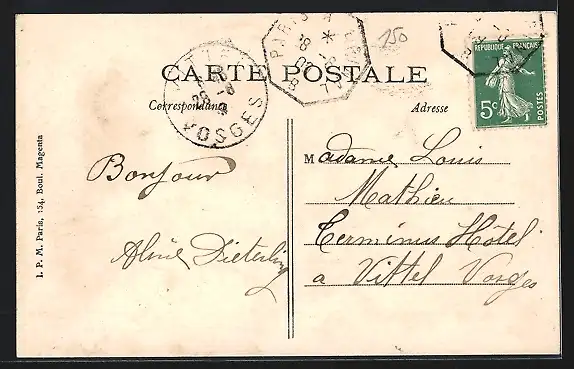 150
PARIS A
VITTEL
VOSGES
CARTE POSTALE
Correspondance
Adresse
REPUBLIQUE FRANÇAISE
5c
POSTES
Bonjour
Madame Louis
Mathieu
Terminus Hôtel
a Vittel Vosges
I. P. M. Paris, 154, Boul. Magenta